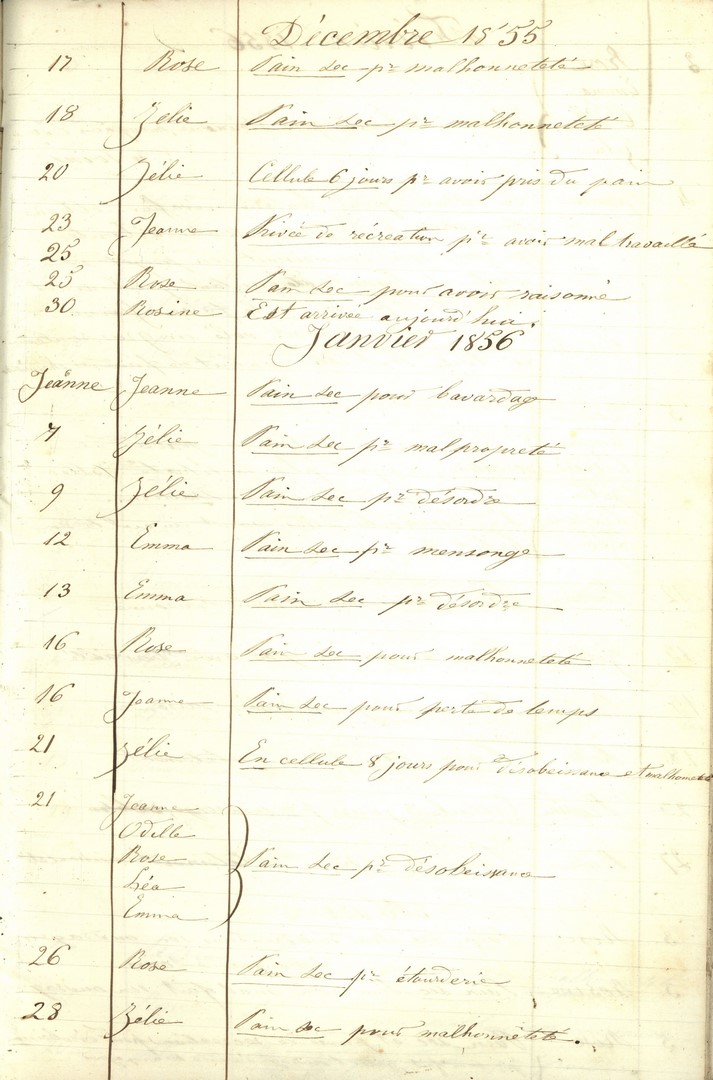 Décembre 1855
17 Rose Pain sec pr malhonneteté
18 Zélie Pain sec pr malhonneteté
20 Zélie Cellule 6 jours pr avoir pris du pain
23 Jeanne Privée de récréation pr avoir mal travaillé
25
25 Rose Pain sec pour avoir raisonné
30 Rosine Est arrivée aujourd'hui.
Janvier 1856
Jeanne Jeanne Pain sec pour bavardage
7 Zélie Pain sec pr malpropreté
9 Zélie Pain sec pr désordre
12 Emma Pain sec pr mensonge
13 Emma Pain sec pr désordre
16 Rose Pain sec pour malhonneteté
16 Jeanne Pain sec pour perte de temps
21 Zélie En cellule 8 jours pour désobeissance et malhonneteté
21 Jeanne
Odille
Rose Pain sec pr désobeissance
Léa
Emma
26 Rose Pain sec pr étourderie
28 Zélie Pain sec pour malhonnêteté.